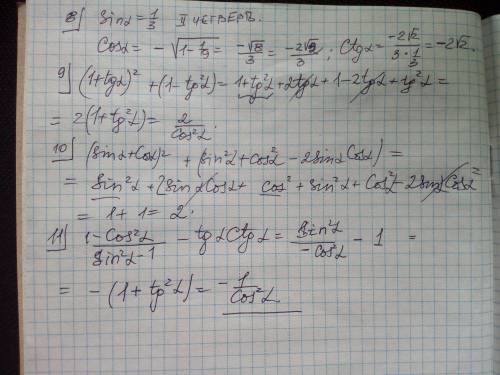 8) Sinα = 1/3 II ЧЕТВЕРТЬ.
Cosα = - √(1-1/9) = -√8/3 = -2√2/3; Ctgα = -2√2/(3·1/3) = -2√2.
9) (1+tgα)² + (1-tg²α) = 1+tg²α+2tgα+1-2tgα+tg²α =
= 2(1+tg²α) = 2/Cos²α.
10) (Sinα+Cosα)² + (Sin²α+Cos²α - 2SinαCosα) =
= Sin²α + 2SinαCosα + Cos² + Sin²α + Cos²α - 2SinαCosα =
= 1 + 1 = 2.
11) (1-Cos²α)/(Sin²α-1) - tgαCtgα = Sin²α/-Cos²α - 1 =
= - (1+tg²α) = -1/Cos²α.